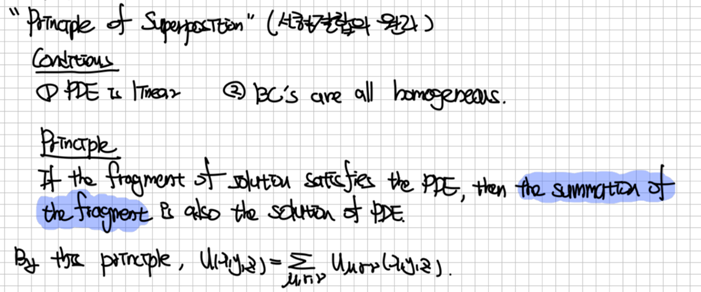 "Principle of Superposition" (선형결합의 원리)
Conditions
① PDE is linear ② BC's are all homogeneous.
Principle
If the fragment of solution satisfies the PDE, then the summation of
the fragment is also the solution of PDE.
By this principle, U(x,y,z) = Σ U_μν(x,y,z).
μ,ν